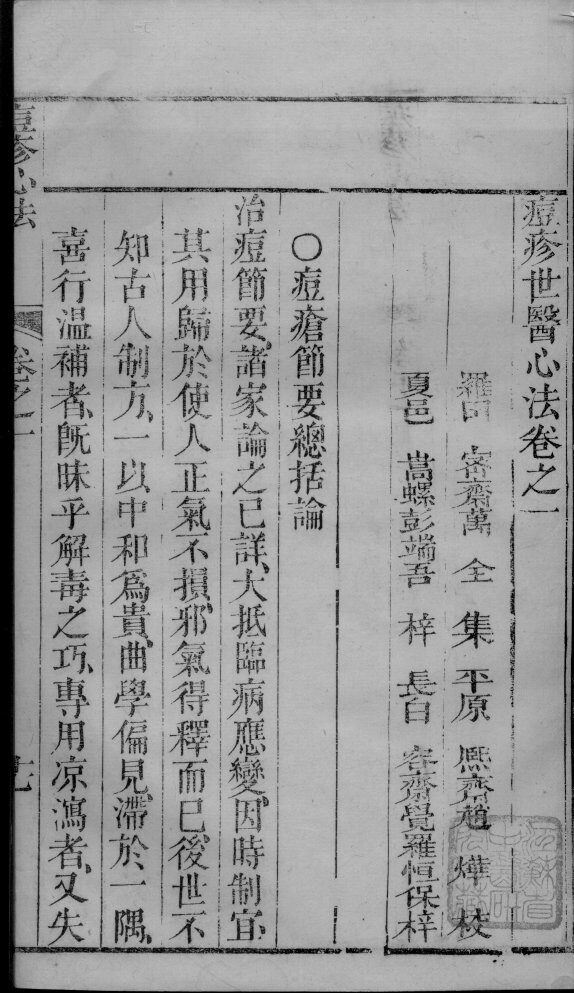 痘疹世醫心法卷之一
羅田 密齋萬 全 集 平原 熈齋趙 燁 校
夏邑 嵩螺彭端吾 梓 長白 容齋覺羅恒保梓
○痘瘡節要總括論
治痘節要、諸家論之已詳、大抵臨病應變、因時制宜、
其用歸於使人正氣不損、邪氣得釋而已、後世不
知古人制方、一以中和爲貴、曲學偏見、滯於一隅、
喜行溫補者、旣昧乎解毒之巧、專用凉瀉者、又失
痘疹心法 卷之一